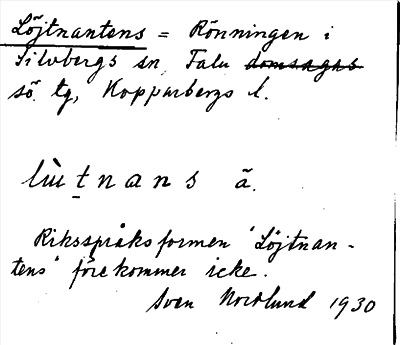 Löjtnantens = Rönningen i
Silvbergs sn, Falu domsagas
sö. tg, Kopparbergs l.
lùi̯tnans ä.
Riksspråksformen "Löjtnan-
tens" förekommer icke.
Sven Nordlund 1930